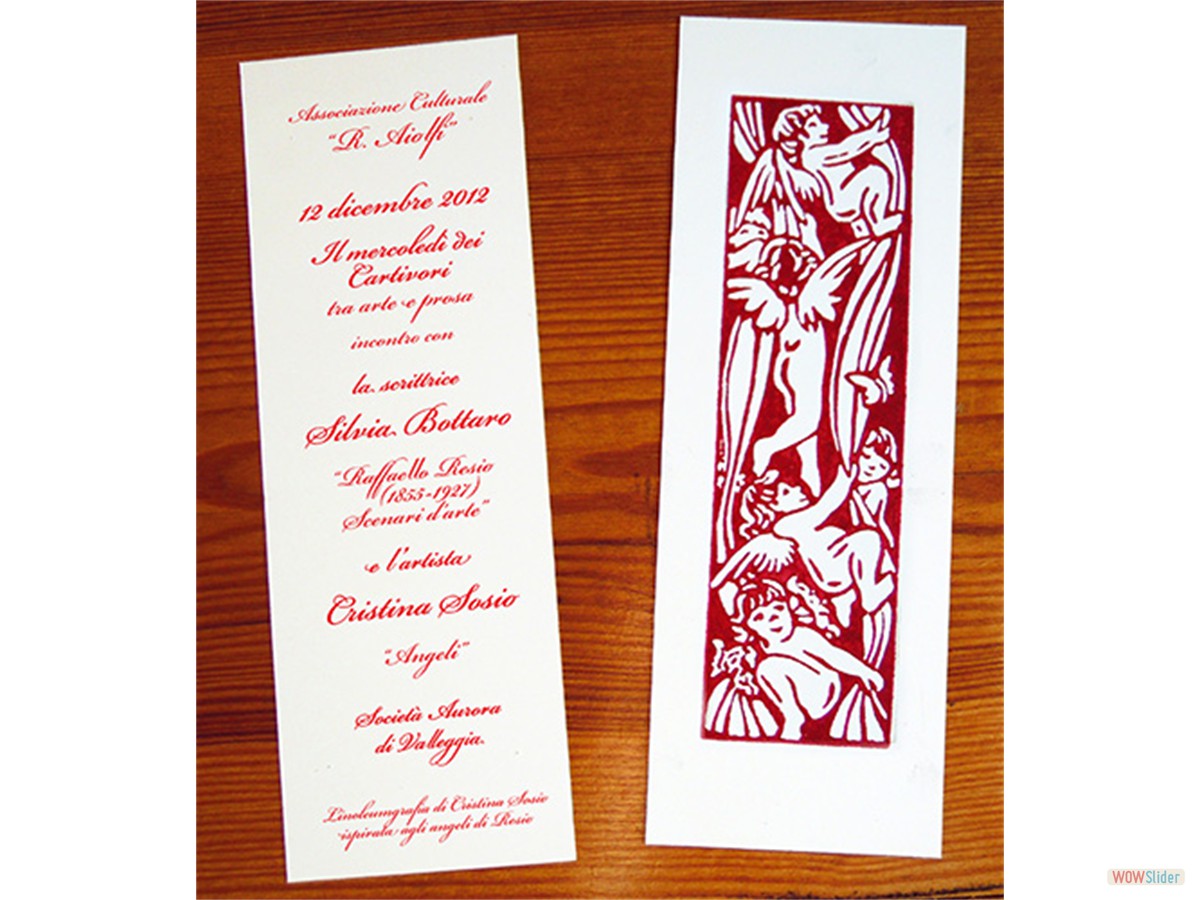 Associazione Culturale
"R. Aiolfi"
12 dicembre 2012
Il mercoledì dei
Cartivori
tra arte e prosa
incontro con
la scrittrice
Silvia Bottaro
"Raffaello Resio
(1855-1927)
Scenari d'arte"
e l'artista
Cristina Sosio
"Angeli"
Società Aurora
di Valleggia
Linoleumgrafia di Cristina Sosio
ispirata agli angeli di Resio
WOWSlider